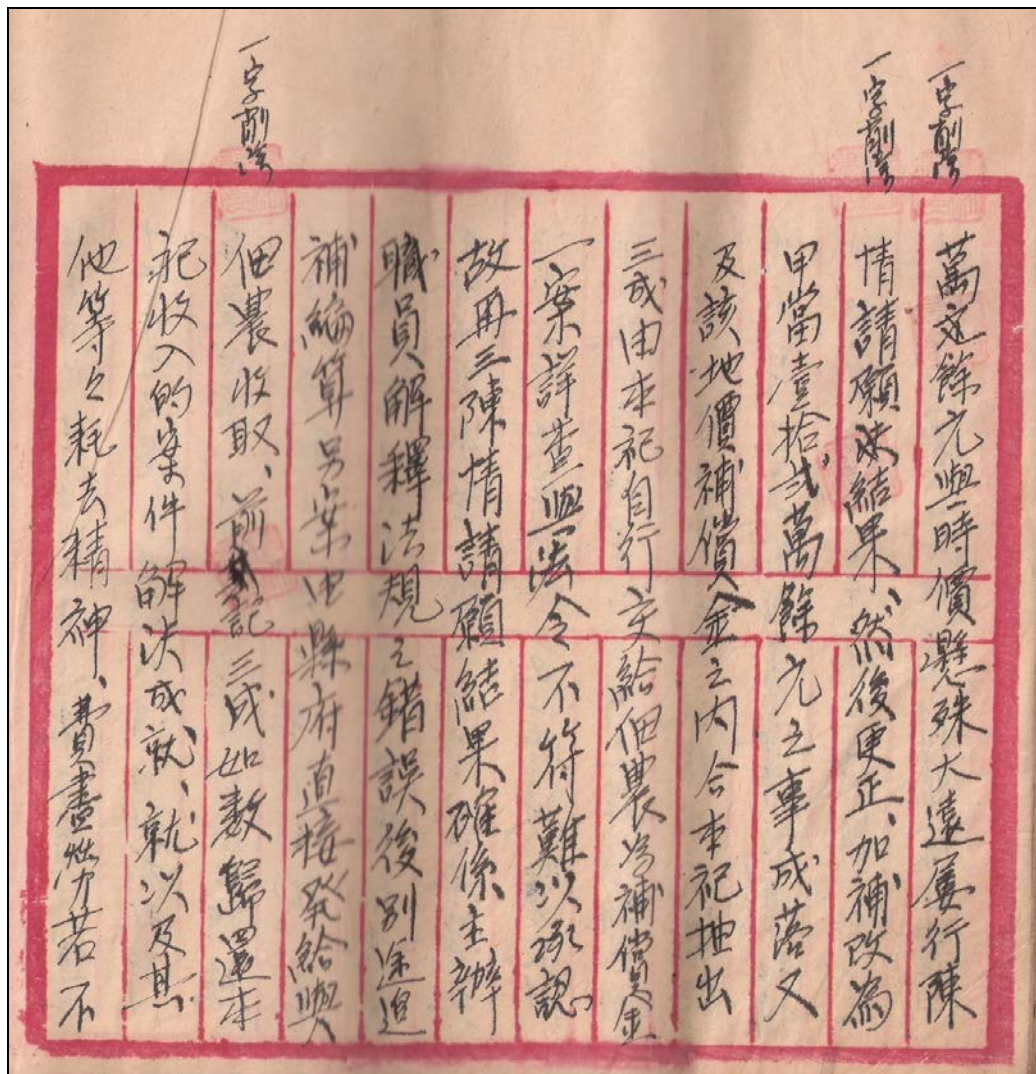 一字削除
一字削除
一字削除
萬元餘元與時價懸殊大遠屢行陳
情請願結果、然後更正、加補改為
甲當壹拾貳萬餘元之事成落又
及該地價補償金之內合本祀抽出
三成由本祀自行交給佃農為補償金
一案詳查與法令不符難以承認
故再三陳情請願結果確係主辦
職員解釋法規之錯誤後別途追
補編算另案由縣府直接發給與
佃農收取、前記三成如數歸還本
祀收入的案件解決成就、就以及其
他等之耗去精神、費盡勞力若不